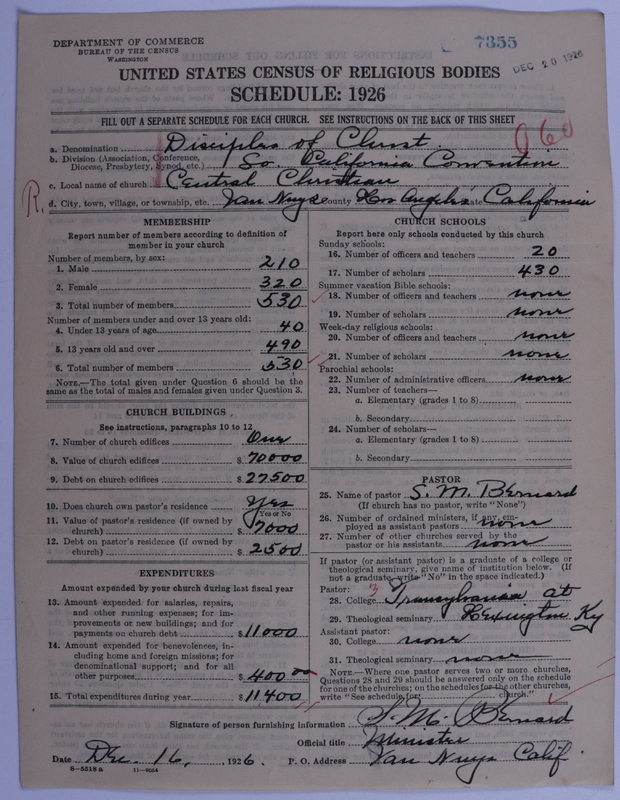 DEPARTMENT OF COMMERCE
BUREAU OF THE CENSUS
WASHINGTON
7355
DEC 20 1926
UNITED STATES CENSUS OF RELIGIOUS BODIES
SCHEDULE: 1926
FILL OUT A SEPARATE SCHEDULE FOR EACH CHURCH. SEE INSTRUCTIONS ON THE BACK OF THIS SHEET
060
a. Denomination Disciples of Christ.
b. Division (Association, Conference, Diocese, Presbytery, Synod, etc.) So. California Convention
c. Local name of church Central Christian
R.
d. City, town, village, or township, etc. Van Nuys County Los Angeles State California
MEMBERSHIP
Report number of members according to definition of
member in your church
Number of members, by sex:
1. Male 210
2. Female 320
3. Total number of members 530
Number of members under and over 13 years old:
4. Under 13 years of age 40
5. 13 years old and over 490
6. Total number of members 530
NOTE.—The total given under Question 6 should be the
same as the total of males and females given under Question 3.
CHURCH BUILDINGS
See instructions, paragraphs 10 to 12
7. Number of church edifices One
8. Value of church edifices $ 70000
9. Debt on church edifices $ 27500
10. Does church own pastor's residence? Yes
Yes or No
11. Value of pastor's residence (if owned by
church) $ 7000
12. Debt on pastor's residence (if owned by
church) $ 2500
EXPENDITURES
Amount expended by your church during last fiscal year
13. Amount expended for salaries, repairs,
and other running expenses; for im-
provements or new buildings; and for
payments on church debt $ 11000
14. Amount expended for benevolences, in-
cluding home and foreign missions; for
denominational support; and for all
other purposes $ 400 00
15. Total expenditures during year $ 11400
CHURCH SCHOOLS
Report here only schools conducted by this church
Sunday schools:
16. Number of officers and teachers 20
17. Number of scholars 430
Summer vacation Bible schools:
18. Number of officers and teachers none
19. Number of scholars none
Week-day religious schools:
20. Number of officers and teachers none
21. Number of scholars none
Parochial schools:
22. Number of administrative officers none
23. Number of teachers—
a. Elementary (grades 1 to 8)
b. Secondary
24. Number of scholars—
a. Elementary (grades 1 to 8)
b. Secondary
PASTOR
25. Name of pastor S. M. Bernard
(If church has no pastor, write "None")
26. Number of ordained ministers, if any, em-
ployed as assistant pastors none
27. Number of other churches served by the
pastor or his assistants none
If pastor (or assistant pastor) is a graduate of a college or
theological seminary, give name of institution below. (If
not a graduate, write "No" in the space indicated.)
Pastor: 3
28. College Transylvania at
29. Theological seminary Lexington Ky
Assistant pastor:
30. College none
31. Theological seminary none
NOTE.—Where one pastor serves two or more churches,
Questions 28 and 29 should be answered only on the schedule
for one of the churches; on the schedules for the other churches,
write "See schedule for church."
Signature of person furnishing information S. M. Bernard
Official title Minister
Date Dec. 16, 1926. P. O. Address Van Nuys Calif.
8—5518 a 11—9064